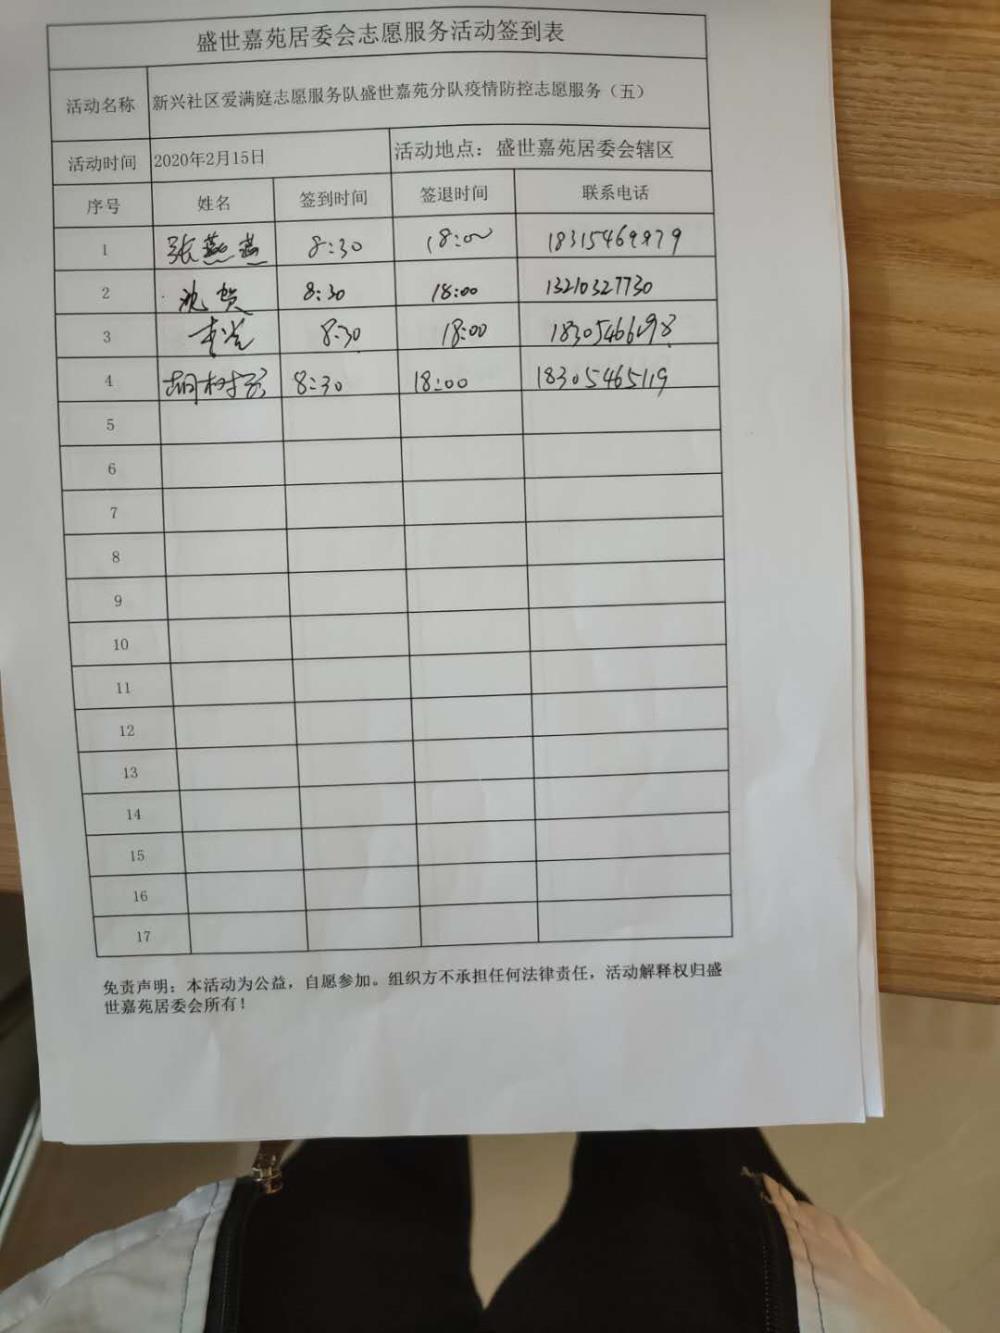 盛世嘉苑居委会志愿服务活动签到表
活动名称 新兴社区爱满庭志愿服务队盛世嘉苑分队疫情防控志愿服务（五）
活动时间 2020年2月15日 活动地点：盛世嘉苑居委会辖区
序号 姓名 签到时间 签退时间 联系电话
1 张燕燕 8:30 18:00 18315469879
2 沈贺 8:30 18:00 13210327730
3 8:30 18:00 18305466198
4 胡树 8:30 18:00 18305465119
5
6
7
8
9
10
11
12
13
14
15
16
17
免责声明：本活动为公益，自愿参加。组织方不承担任何法律责任，活动解释权归盛
世嘉苑居委会所有！